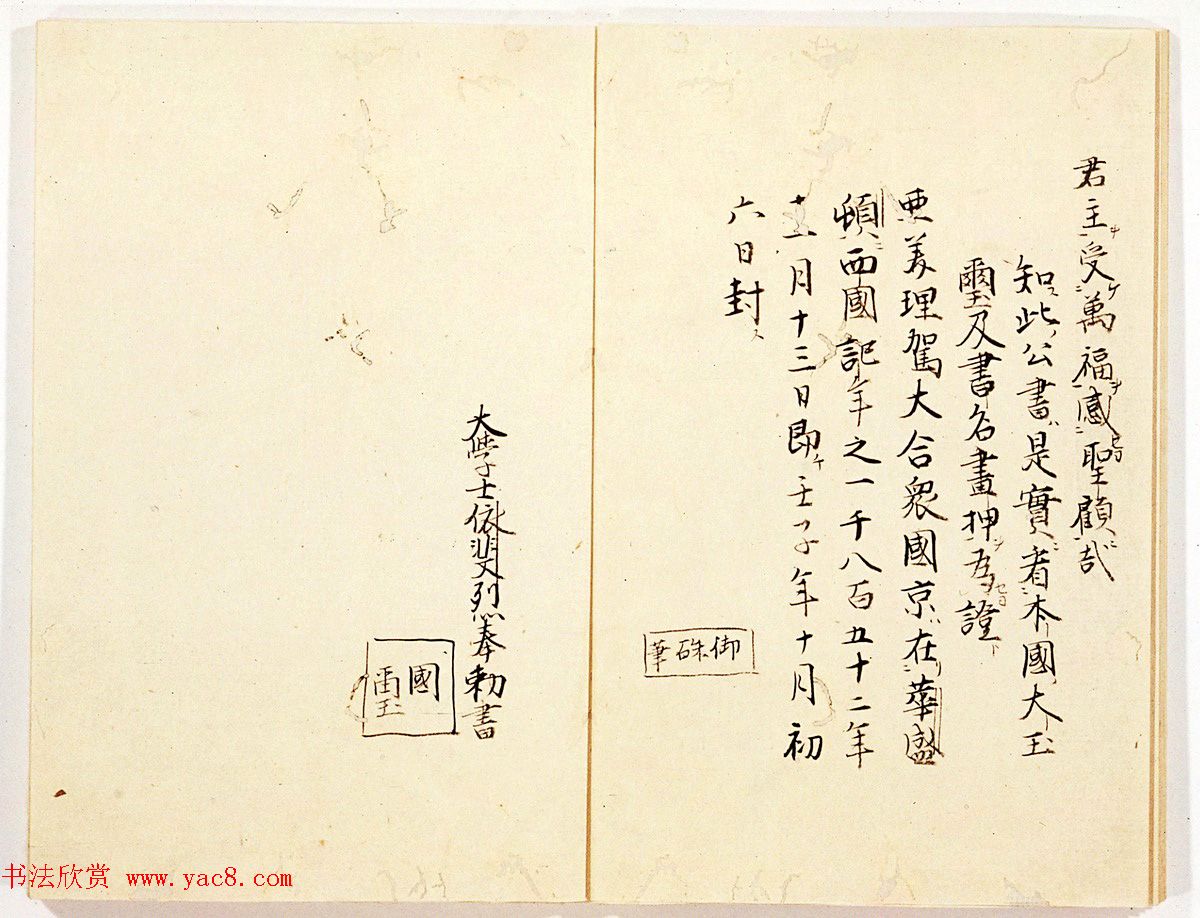 君主受萬福感聖顧哉
知此公書是實者本國大玉
璽及書名畫押為證
亜美理駕大合衆國京在華盛
頓西國記年之一千八百五十二年
十一月十三日即壬子年十月初
六日封
御硃筆
大學士依斐烈奉勅書
國璽
书法欣赏 www.yac8.com